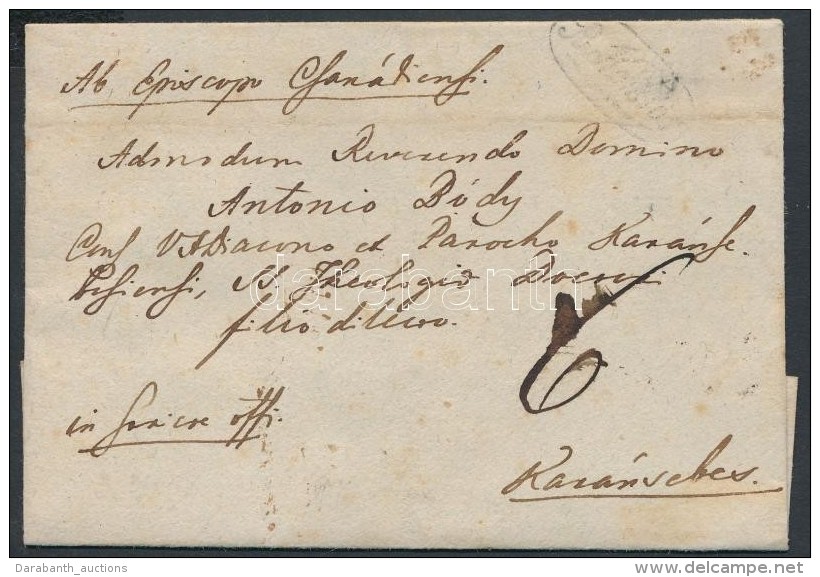 Ab Episcopo Csanádiensi.
Admodum Reverendo Domino
Antonio Bódy
Cons V.ADiacono et Parocho Karánse
besiensi, SS. Theologio Doctori
filio dilecto.
in off.
6
Karánsebes.
darabanth
Darabanth_auctions
http://www.delcampe.net